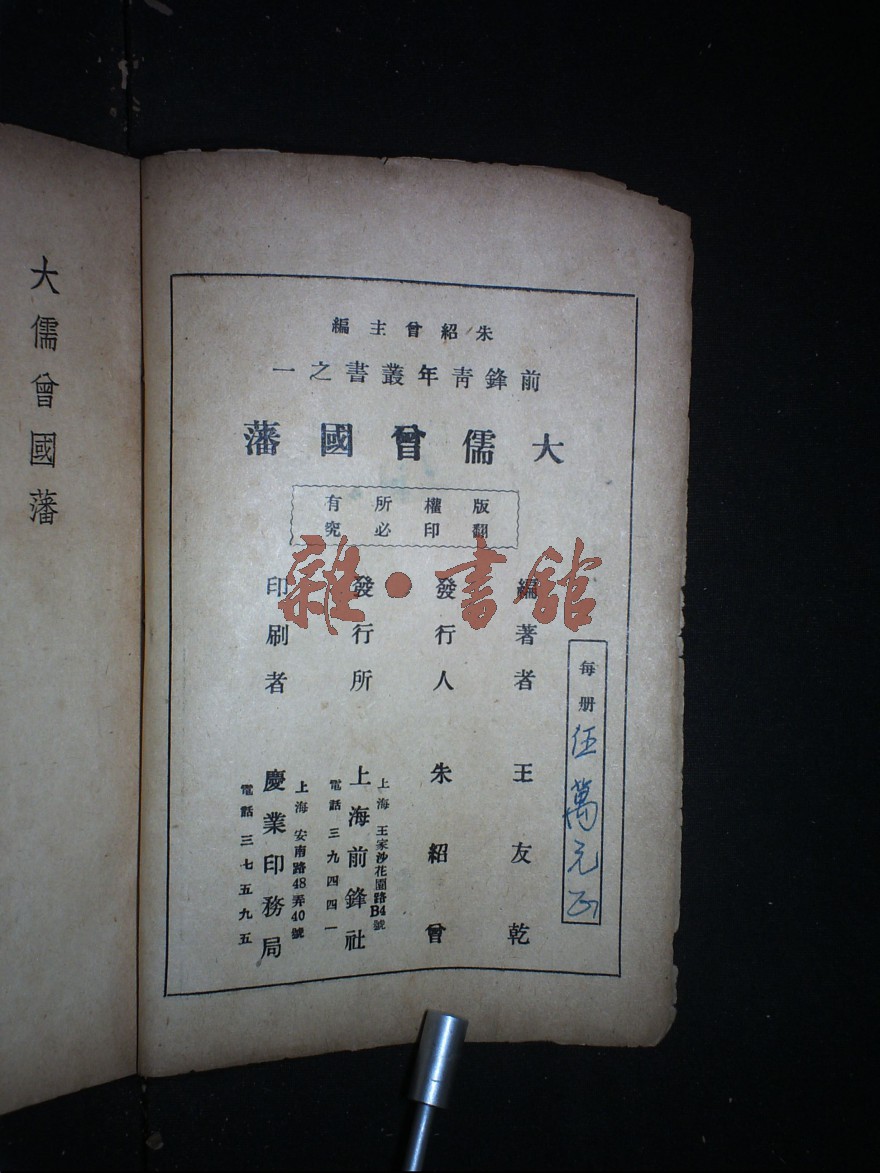 朱紹曾主編
前鋒靑年叢書之一
大儒曾國藩
版權所有
翻印必究
每册伍萬元正
編著者 王友乾
發行人 朱紹曾
發行所 上海前鋒社
上海王家沙花園路B4號
電話三九四四一
印刷者 慶業印務局
上海安南路48弄40號
電話三七五九五
大儒曾國藩
雜·書館